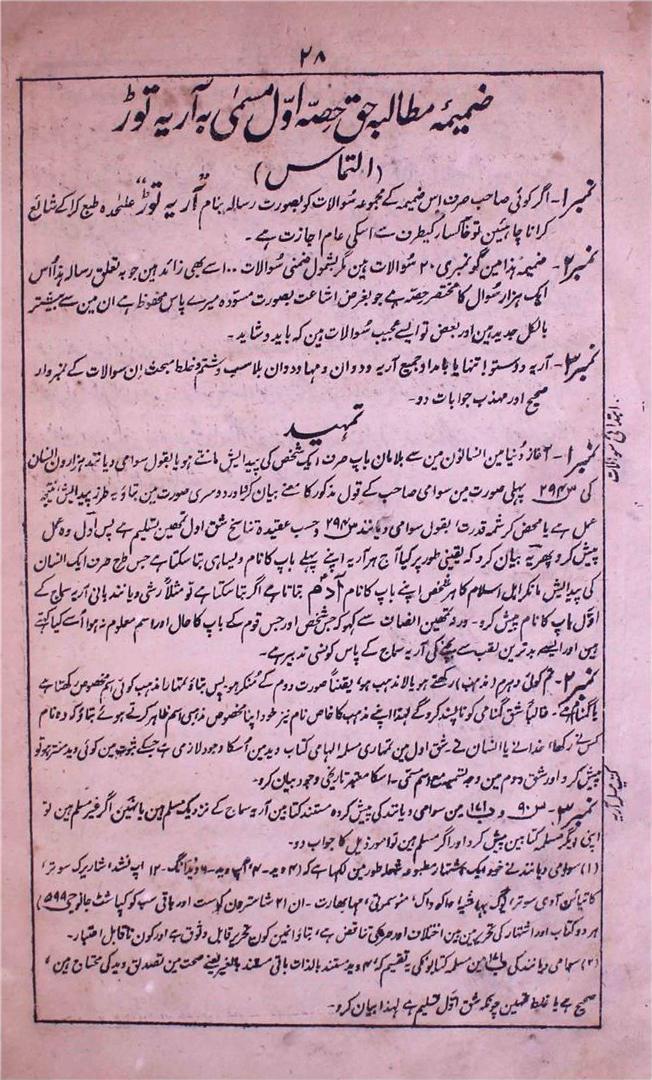 ۲۸
ضمیمۂ مطالبہ حق حصّہ اوّل مسمّٰی بہ آریہ توڑ
(التماس)
نمبر۱- اگر کوئی صاحب صرف اس ضمیمہ کے مجموعہ سُوالات کو بصورت رسالہ بنام "آریہ توڑ" علٰحدہ طبع کرا کے شائع
کرانا چاہئین تو خاکسار کیطرف سے اسکی عام اجازت ہے۔
نمبر۲- ضمیمہ ہذا مین گو نمبری ۲۰ سُوالات ہین مگر بشمول ضمنی سُوالات ۱۰۰ سے بھی زائد ہین جو بہ تعلق رسالہ ہذا اُس
ایک ہزار سُوال کا مختصر حصّہ ہے جو بغرض اشاعت بصورت مسوّدہ میرے پاس محفوظ ہے ان مین سے بیشتر
بالکل جدید ہین اور بعض تو ایسے عجیب سُوالات ہین کہ باید و شاید۔
نمبر۳- آریہ دوستو! تنہا یا بامداد جمیع آریہ ودوان و مہا ودوان بلا سب و شتم و خلط مبحث اِن سوالات کے نمبروار
صحیح اور مہذب جوابات دو۔
تمہید
ابتدائی سوالات
نمبر۱- آغاز دُنیا مین انسانون مین سے بلا مان باپ صرف ایک شخص کی پیدایش مانتے ہو یا بقول سوامی دیانند ہزارون انسان
کی س ۲۹۴ پہلی صورت مین سوامی صاحب کے قول مذکور کا معنے بیان کرو اور دوسری صورت مین بتاؤ یہ طرز پیدایش نتیجہ
عمل ہے یا محض کرشمہ قدرت، بقول سوامی دیانند س ۲۹۴ وحسب عقیدہ تناسخ شق اول تمھین تسلیم ہے پس اوّل وہ عمل
پیش کرو پھر یہ بیان کرو کہ یقینی طور پر کیا آج ہر آریہ اپنے پہلے باپ کا نام ویسا ہی بتا سکتا ہے جس طرح صرف ایک انسان
کی پیدایش مانکر اہل اسلام کا ہر شخص اپنے باپ کا نام آدمؑ بتاتا ہے اگر بتا سکتا ہے تو مثلاً رشی دیانند بانی آریہ سماج کے
اوّل باپ کا نام پیش کرو۔ ورنہ تمھین انصاف سے کہو کہ جس شخص اور جس قوم کے باپ کا حال اور اسم معلوم نہ ہو اُسے کیا کہتے
ہین اور ایسے بدترین لقب سے بچنے کی آریہ سماج کے پاس کونسی تدبیر ہے۔
نمبر۲- تم کوئی دہرم (مذہب) رکھتے ہو یا لا مذہب ہو، یقیناً صورت دوم کے مُنکر ہو پس بتاؤ تمہارا مذہب کوئی اسم مخصوص رکھتا ہے
یا گمنام ہے۔ غالباً شق گمنامی کو ناپسند کرو گے لہٰذا اپنے مذہب کا خاص نام نیز خود اپنا مخصوص مذہبی اسم ظاہر کرتے ہوئے بتاؤ کہ وہ نام
کس نے رکھا، خدا نے یا انسان نے شق اول مین تمہاری مسلمہ الہامی کتاب وید مین اُسکا وجود لازمی ہے جسکے ثبوت مین کوئی وید منتر ہو تو
پیش کرو اور شق دوم مین وجہ تسمیہ مع اسم مسمی۔ اسکا معتبر تاریخی وجود بیان کرو۔
نمبر۳- س ۹۰ و ۱۷۱ مین سوامی دیانند کی پیش کردہ مستند کتابین آریہ سماج کے نزدیک مسلم ہین یا نہین اگر غیر مسلم ہین تو
اپنی دیگر مسلمہ کتابین پیش کرو اور اگر مسلم ہین تو امور ذیل کا جواب دو۔
(۱) سوامی دیانند نے خود ایک اشتہار مطبوعہ شعلہ طور مین لکہا ہے کہ (۴ وید۔ ۴ اُپ وید۔ ۶ ویدانگ۔ ۱۲ اپ نشد، شاریرک سوتر،
کاتیائن آدی سوتر، یوگ بہاشیہ، واکو واک، منوسمرتی، مہابھارت۔ ان ۲۱ شاسترون کو ست اور باقی سب کو کپاشٹ جانو ج ۵۹۹)
ہر دو کتاب اور اشتہار کی تحریر مین بین اختلاف اور صریحی تناقض ہے، بتاؤ انمین کون تحریر قابل وثوق ہے اور کون ناقابل اعتبار۔
(۲) سوامی دیانند کی ۱۷۱ مین مسلمہ کتابونکی یہ تقسیم کہ ۴ وید مستند بالذات باقی مستند بالغیر یعنے صحت مین تصدیق وید کی محتاج ہین،
صحیح ہے یا غلط تمھین چونکہ شق اوّل تسلیم ہے لہذا بیان کرو۔